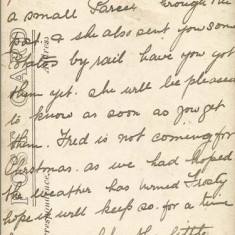 a small Parcel through the
post. & she also sent you some
by rail have you got
them yet. she will be pleased
to know as soon as you get
them. Fred is not coming for
Christmas. as we had hoped
the weather has turned Frosty
hope it will keep so. for a time
the little
CARD
Address